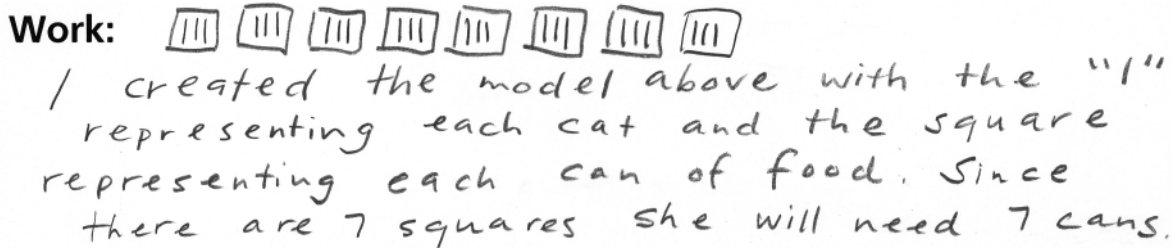 Work:
I created the model above with the "I"
representing each cat and the square
representing each can of food. Since
there are 7 squares she will need 7 cans.